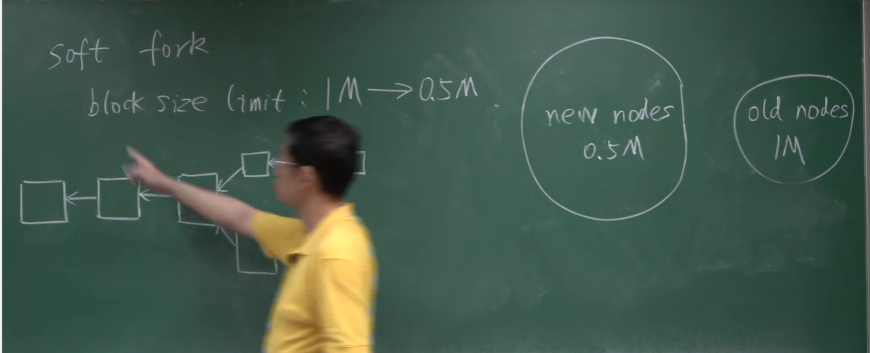 soft fork
block size limit : 1M → 0.5M
new nodes
0.5M
old nodes
1M